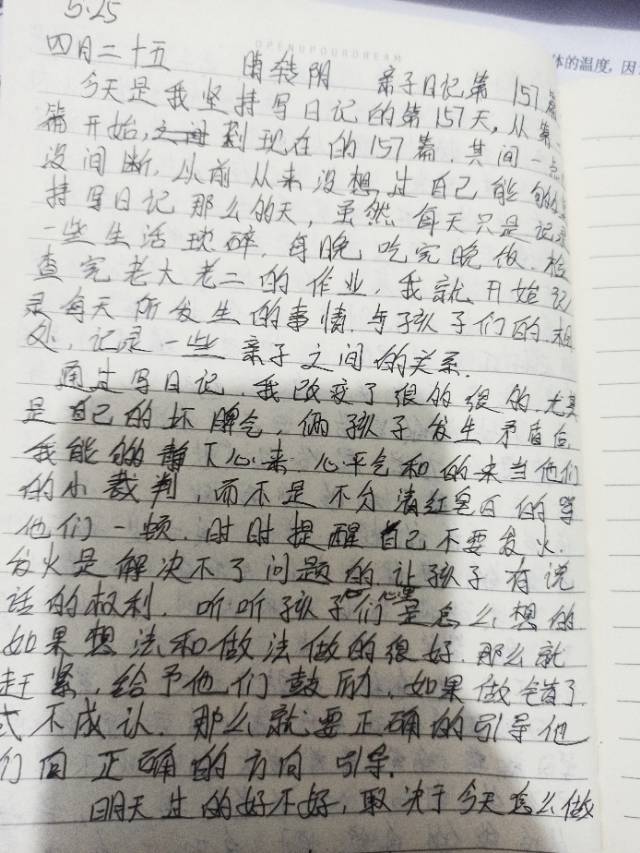 5.25
OPENUPOURDREAM
体的温度,因
四月二十五 晴转阴 亲子日记第157篇
今天是我坚持写日记的第157天,从第一
篇开始,之母到现在的157篇.其间一点
没间断,从前从来没想过自己能的
持写日记那么的天,虽然每天只是记录
一些生活琐碎.每晚吃完晚饭.检
查完老大老二的作业,我就开始记
录每天所发生的事情.与孩子们的相
处,记录一些亲子之间的关系.
通过写日记.我改变了很的很的.尤其
是自己的坏脾气,俩孩子发生矛盾后
我能的静下心来心平气和的来当他们
的小裁判,而不是不分清红皂白的
他们一顿.时时提醒自己不要发火.
发火是解决不了问题的.让孩子有说
话的权利.听听孩子们心里是怎么想的
如果想法和做法做的很好.那么就
赶紧.给予他们鼓励.如果做错了
式不成认.那么就要正确的引导他
们向正确的方向引导.
明天过的好不好,取决于今天怎么做